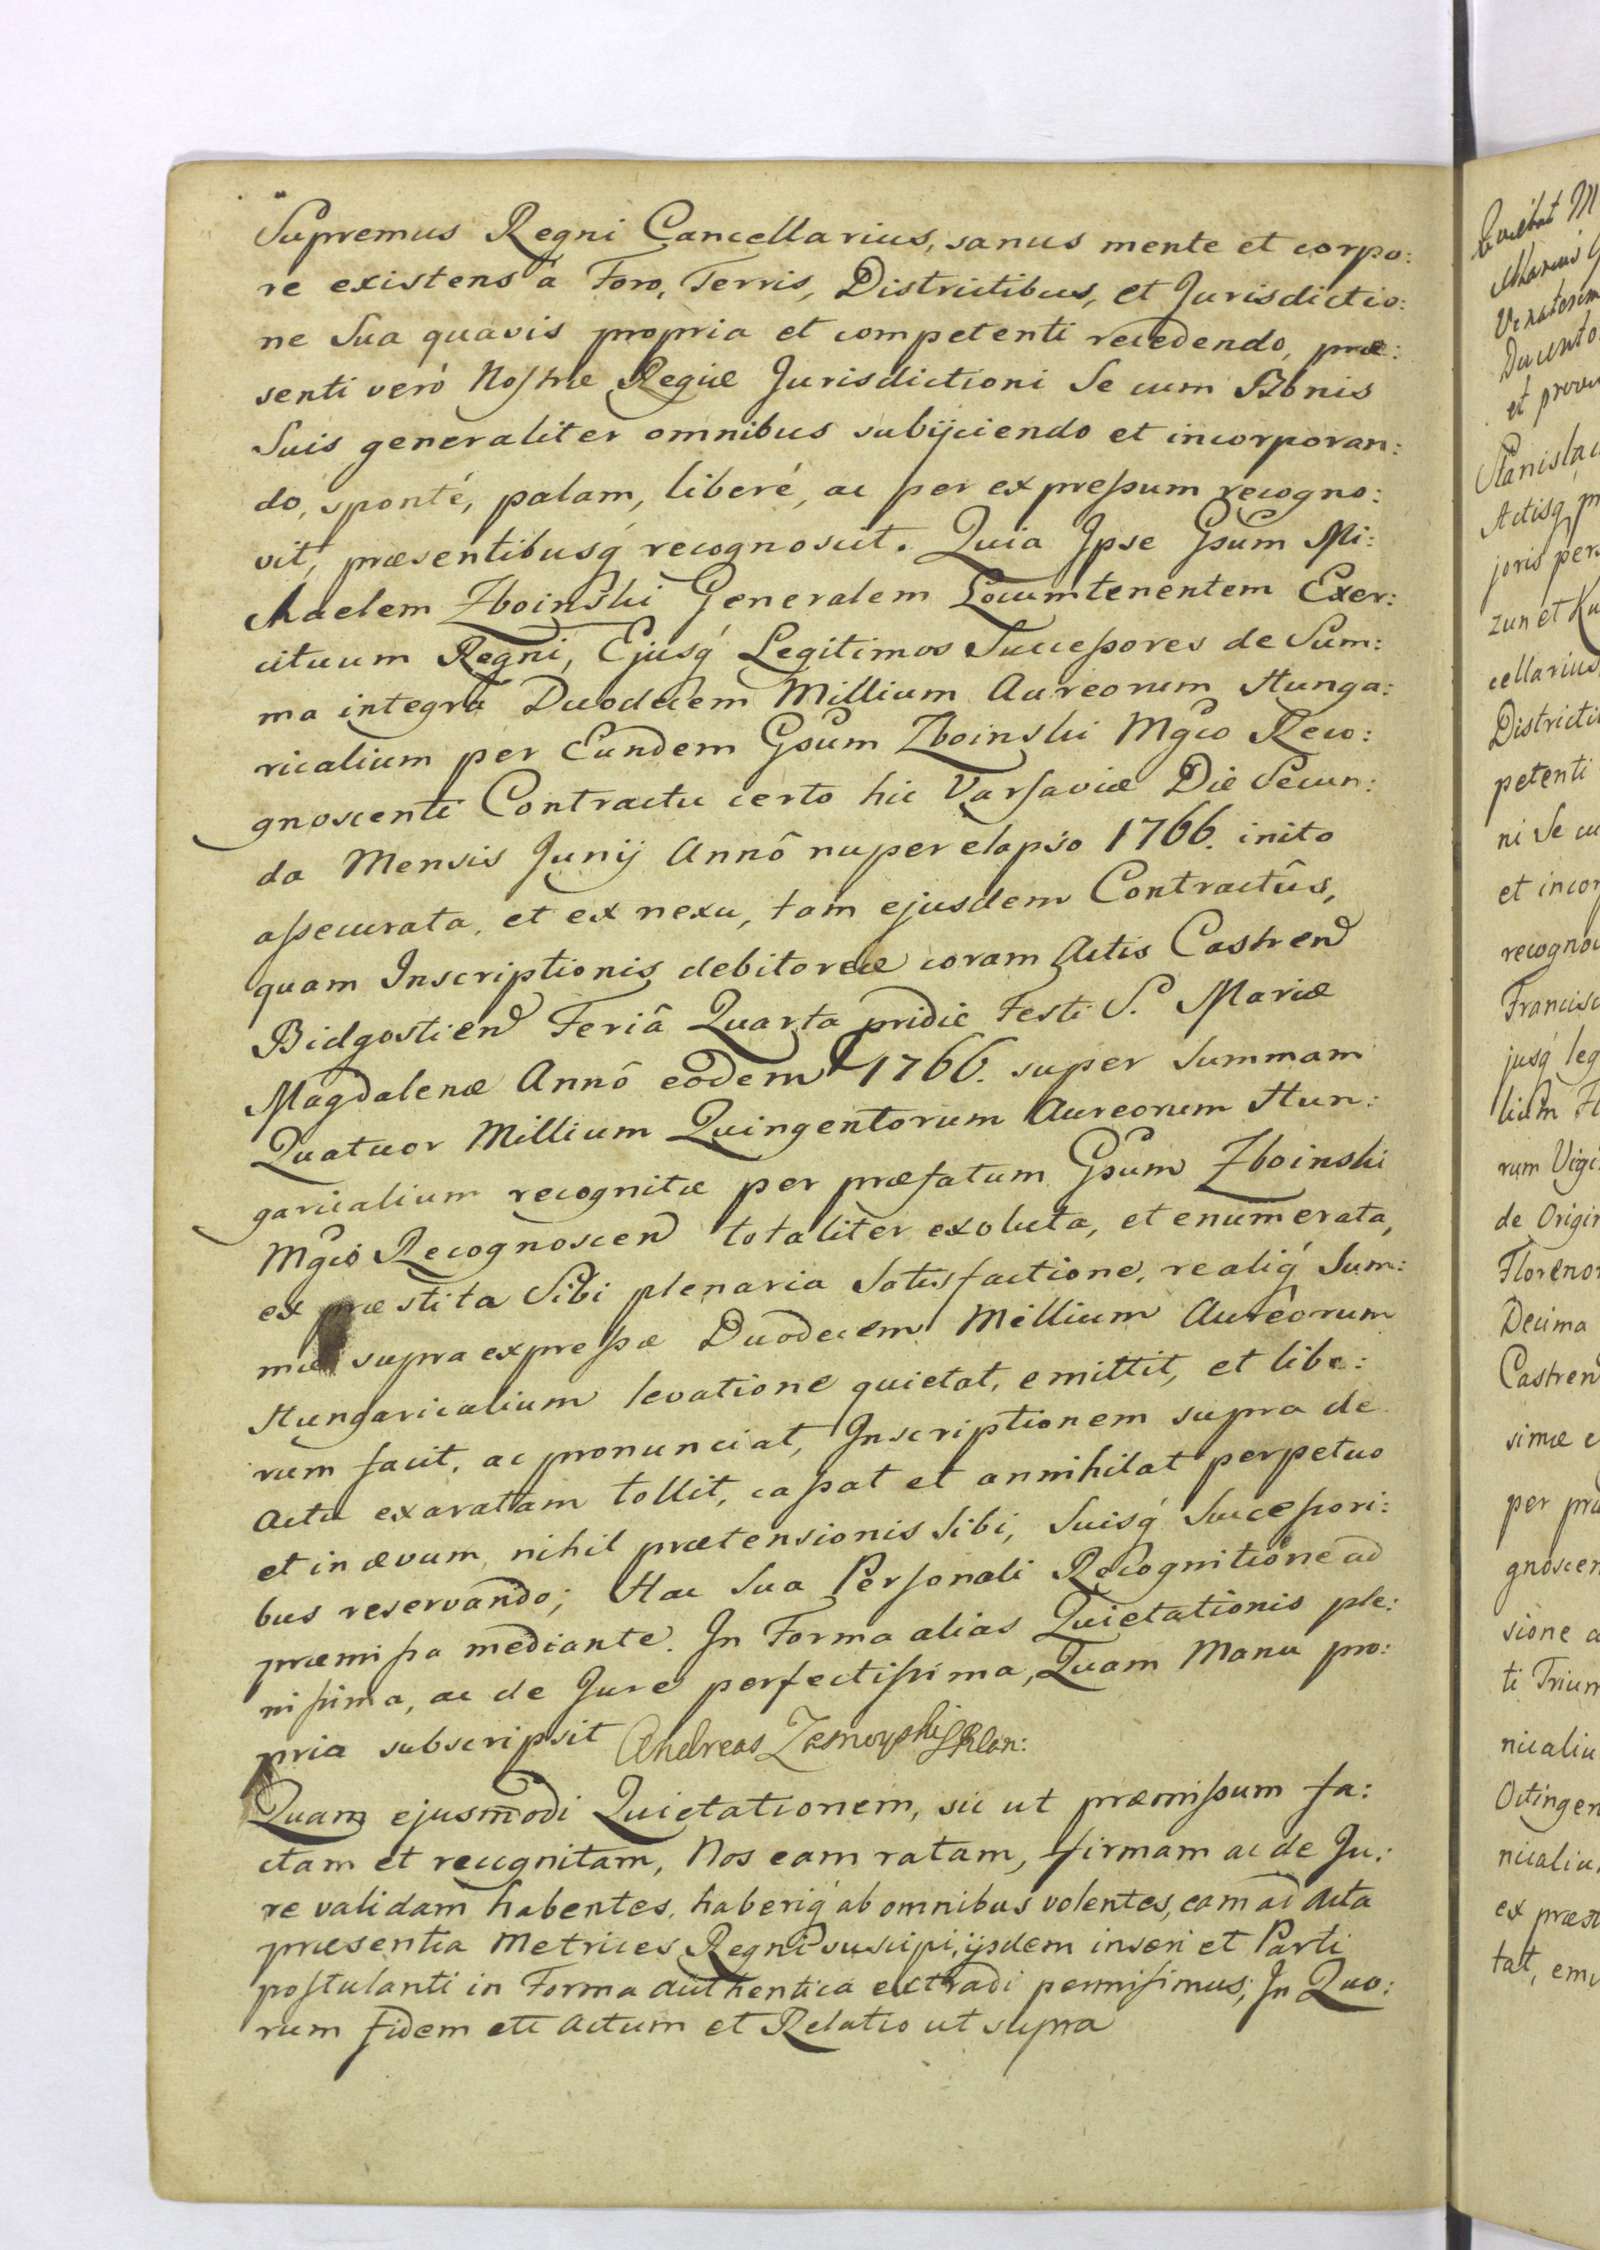 Supremus Regni Cancellarius, sanus mente et corpo:
re existens á Foro, Terris, Districtibus, et Jurisdictio:
ne Sua quavis propria et competenti recedendo, præ:
senti veró Nostræ Regiæ Jurisdictioni Se cum Bonis
Suis generaliter omnibus subijciendo et incorporan:
do, sponté, palam, liberé, ac per expressum recogno:
vit, præsentibusq́ recognoscit. Quia Ipse Gsum Mi:
chaelem Zboinski Generalem Locumtenentem Exer:
cituum Regni, Ejusq́ Legitimos Successores de Sum:
ma integra Duodecem Millium Aureorum Hunga:
ricalium per Eundem Gsum Zboinski Mgco Reco:
gnoscenti Contractu certo hic Varsaviæ Die Secun:
da Mensis Junij Annô nuper elapso 1766. inito
assecurata, et ex nexu, tam ejusdem Contractûs,
quam Inscriptionis debitoreæ coram Actis Castren
Bidgostien Feriâ Quarta pridie Festi S. Mariæ
Magdalenæ Annô eodem 1766. super Summam
Quatuor Millium Quingentorum Aureorum Hun:
garicalium recognitæ per præfatum Gsum Zboinski
Mgco Recognoscen totaliter exoluta, et enumerata,
ex præstita Sibi plenaria Satisfactione, realiq́ Sum:
mæ supra expressæ Duodecem Millium Aureorum
Hungaricalium levatione quietat, emittit, et libe:
rum facit, ac pronunciat, Inscriptionem supra de
Actu exaratam tollit, cassat et annihilat perpetuo
et in ævum, nihil prætensionis Sibi, Suisq́ Successori:
bus reservando; Hac Sua Personali Recognitione ad
præmissa mediante. In Forma alias Quietationis ple:
nissima, ac de Jure perfectissima, Quam Manu pro:
pria subscripsit Andreas Zamoyski
Quam ejusmodi Quietationem, sic ut præmissum fa:
ctam et recognitam, Nos eam ratam, firmam ac de Ju:
re validam habentes, haberiq́ ab omnibus volentes, eam ad Acta
præsentia Metrices Regni suscipi, ijsdem inseri et Parti
postulanti in Forma authentica extradi permisimus; In Quo:
rum fidem etc Actum et Relatio ut supra
Stanisla
Actisq́ pr
joris per
zun et Ku
cellarius
Districti
petenti
ni Se cu
et incor
recogno
Francisc
jusq́ leg
lium
rum Vigi
de Origi
Florenor
Decima
Castren
simæ e
per præ
gnoscen
sione a
ti Trium
nicaliu
Octingen
nicaliu
ex præst
tat, emi